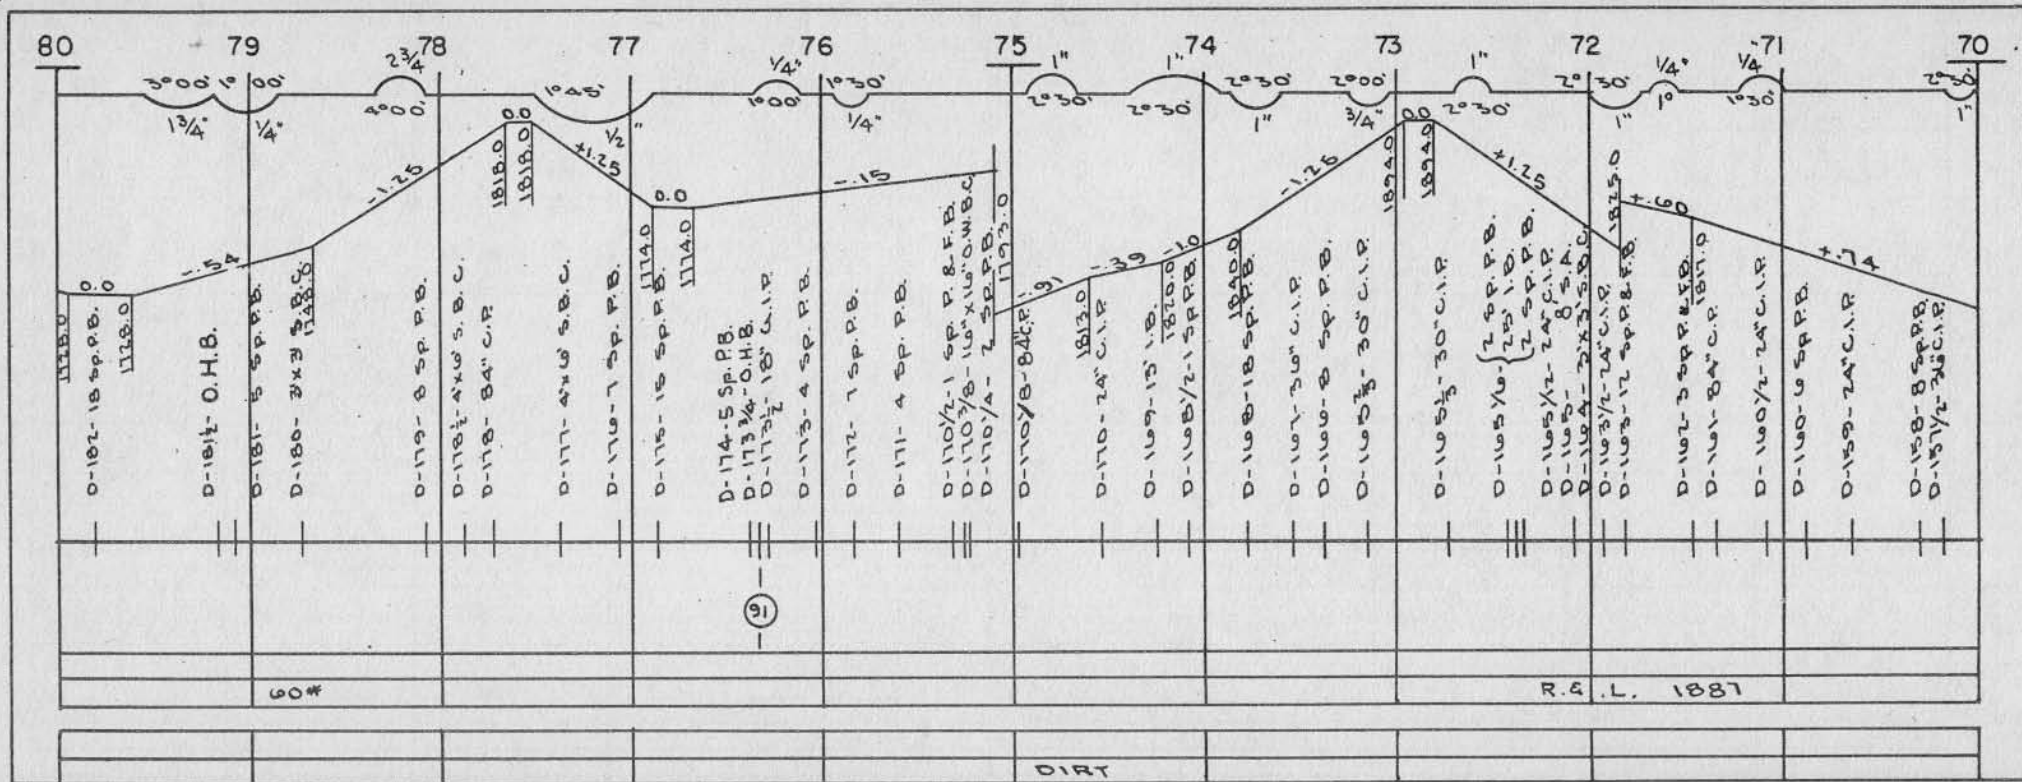 80 79 78 77 76 75 74 73 72 71 70
3°00' 1°00' 2¾ 1°45' ¼" 1°30' 1" 1" 2°30' 2°00' 1" 2° 30' ¼" ¼" 2°30'
1¾" ¼" 3°00' ½" 1°00' ¼" 2°30' 2°30' 1" ¾" 2°30' 1" 1° 1°30' 1"
0.0 -.54 -1.25 0.0 +1.25 0.0 -.15 -.91 -.39 -1.0 -1.25 0.0 +1.25 +.60 +.74
1728.0
1728.0
1748.0
1818.0
1818.0
1774.0
1774.0
1793.0
1813.0
1820.0
1840.0
1894.0
1894.0
1825.0
1817.0
D-182-18 Sp.P.B.
D-181½- O.H.B.
D-181- 5 Sp.P.B.
D-180- 3'x3' S.B.C.
D-179- 8 Sp. P.B.
D-178½-4'x6' S.B.C.
D-178- 84" C.P.
D-177- 4'x6' S.B.C.
D-176-7 Sp. P.B.
D-175-15 Sp.P.B.
D-174-5 Sp.P.B.
D-173¾-O.H.B.
D-173½-18" C.I.P.
D-173-4 Sp. P.B.
D-172- 7 Sp. P.B.
D-171- 4 Sp. P.B.
D-170½-1 Sp. P.&F.B.
D-170⅜-16"x16" O.W.B.C.
D-170¼- 2 Sp. P.B.
D-170⅛-84" C.P.
D-170-24" C.I.P.
D-169-13' I.B.
D-168½-1 Sp.P.B.
D-168-18 Sp.P.B.
D-167-36" C.I.P.
D-166-8 Sp. P.B.
D-165⅔-30" C.I.P.
D-165⅓-30" C.I.P.
D-165⅙- { 2 Sp. P.B.
25' I.B.
2 Sp. P.B.
D-165½-24" C.I.P.
D-165- 8' S.A.
D-164-3'x3' S.B.C.
D-163½-24" C.I.P.
D-163-12 Sp.P.&F.B.
D-162-3 Sp.P.&F.B.
D-161-84" C.P.
D-160½-24" C.I.P.
D-160-6 Sp.P.B.
D-159-24" C.I.P.
D-158-8 Sp.P.B.
D-157½-36" C.I.P.
91
60# R.& L. 1887
DIRT